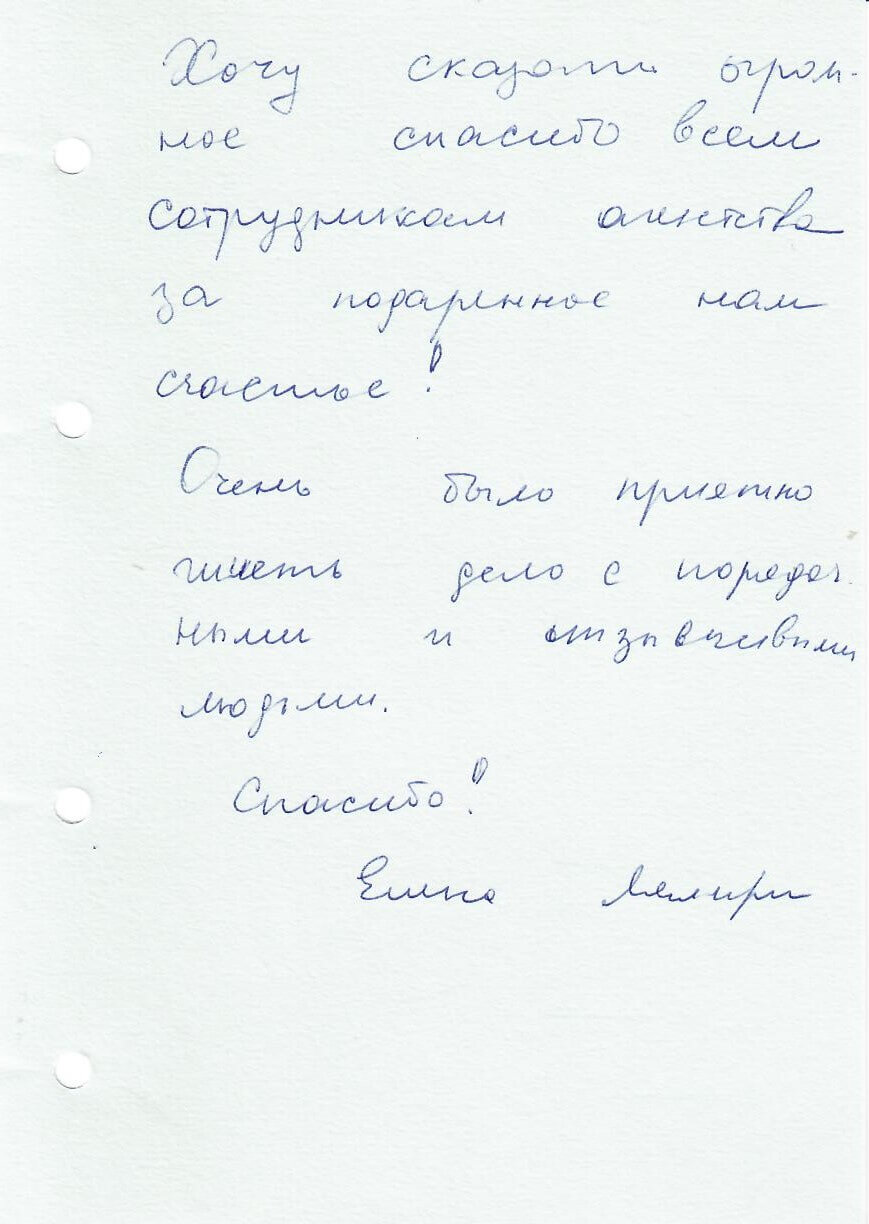 Хочу сказать огром-
ное спасибо всем
сотрудникам агентства
за подаренное нам
счастье!
Очень было приятно
иметь дело с порядоч-
ными и отзывчивыми
людьми.
Спасибо!
Елена